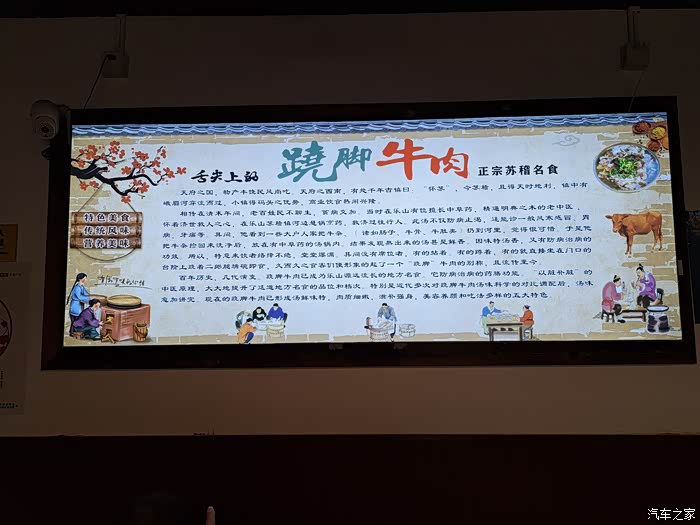 舌尖上的 跷脚牛肉 正宗苏稽名食
特色美食
传统风味
营养美味
天府之国，物产丰饶民风尚吃，天府之西南，有处千年古镇曰，“怀苏”，今苏稽，且得天时地利，镇中有
峨眉河穿流而过，小镇得码头之优势，商业饮食热闹兴隆。
相传在清末年间，老百姓民不聊生，百病交加，当时在乐山有位擅长中草药，精通明典之术的老中医，
怀着济世救人之心，在乐山苏稽镇河边悬锅烹药，救济过往行人，此汤不仅防病止渴，还能诊一般风寒感冒，胃
病、牙痛等，其间，他看到一些大户人家把牛杂，（诸如肠子、牛骨、牛肚类）仍到河里，觉得很可惜，于是他
把牛杂捡回来洗净后，放在有中草药的汤锅内，结果发现熬出来的汤甚是鲜香，因味特汤香，又有防病治病的
功效，所以，特意来饮者络绎不绝，堂堂爆满，其间没有席位者，有的站着，有的蹲着，有的就直接坐在门口的
台阶上跷着二郎腿端碗即食，久而久之食客们便形象的起了一个“跷脚”牛肉的别称，且流传至今。
百年历史，几代演变，跷脚牛肉已成为乐山源远流长的地方名食，它防病治病的药膳功能，“以脏补脏”的
中医原理，大大地提升了这道地方名食的品位和档次，特别是近代多次对跷脚牛肉汤味科学的对比调配后，汤味
愈加讲究，现在的跷脚牛肉已形成汤鲜味特，肉质细嫩，滋补强身，美容养颜和吃法多样的五大特色。
汽车之家